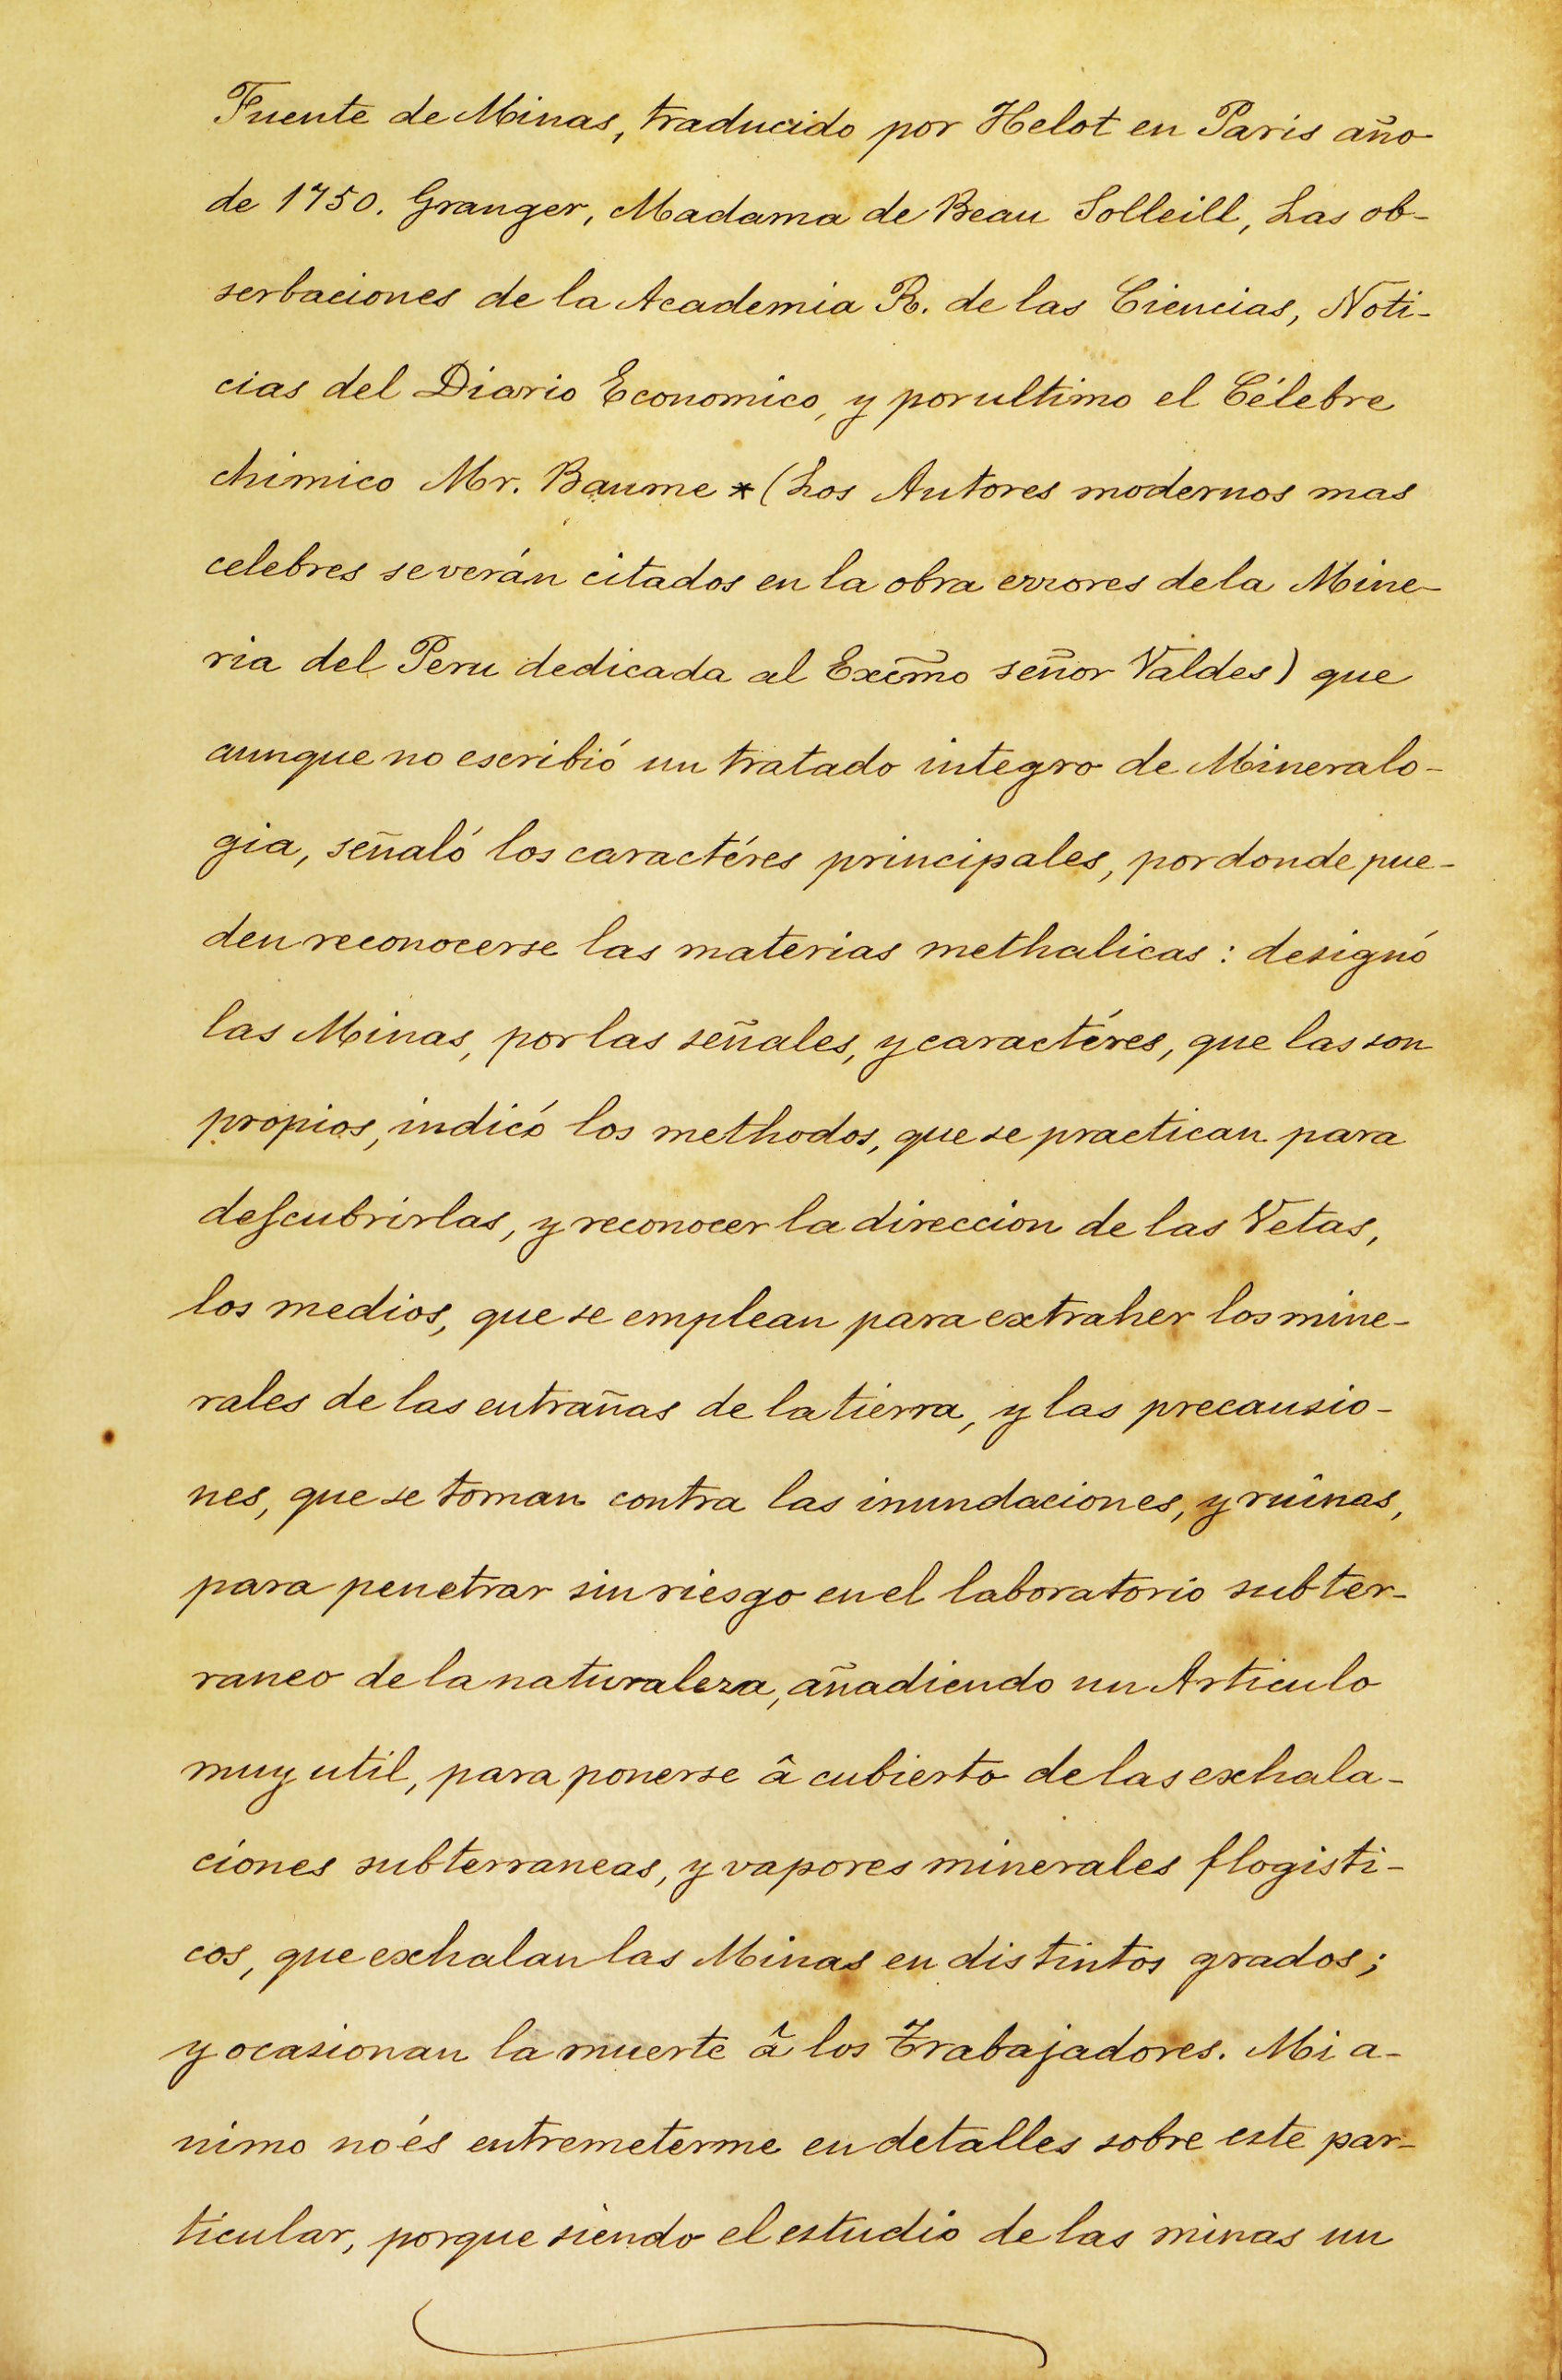 Fuente de Minas, traducido por Helot en Paris año
de 1750. Granger, Madama de Beau Solleill, Las ob-
serbaciones de la Academia R. de las Ciencias, Noti-
cias del Diario Economico, y por ultimo el Célebre
chimico Mr. Baume * (Los Autores modernos mas
celebres se verán citados en la obra errores de la Mine-
ria del Peru dedicada al Excm̃o señor Valdes) que
aunque no escribió un tratado integro de Mineralo-
gia, señaló los caractéres principales, por donde pue-
den reconocerse las materias methalicas: designó
las Minas, por las señales, y caractéres, que las son
propios, indicó los methodos, que se practican para
deſcubrirlas, y reconocer la direccion de las Vetas,
los medios, que se emplean para extraher los mine-
rales de las entrañas de la tierra, y las precausio-
nes, que se toman contra las inundaciones, y ruînas,
para penetrar sin riesgo en el laboratorio subter-
raneo de la naturaleza, añadiendo un Articulo
muy util, para ponerse â cubierto de las exhala-
ciones subterraneas, y vapores minerales flogisti-
cos, que exhalan las Minas en distintos grados;
y ocasionan la muerte â los Trabajadores. Mi a-
nimo no és entremeterme en detalles sobre este par-
ticular, porque siendo el estudio de las minas un